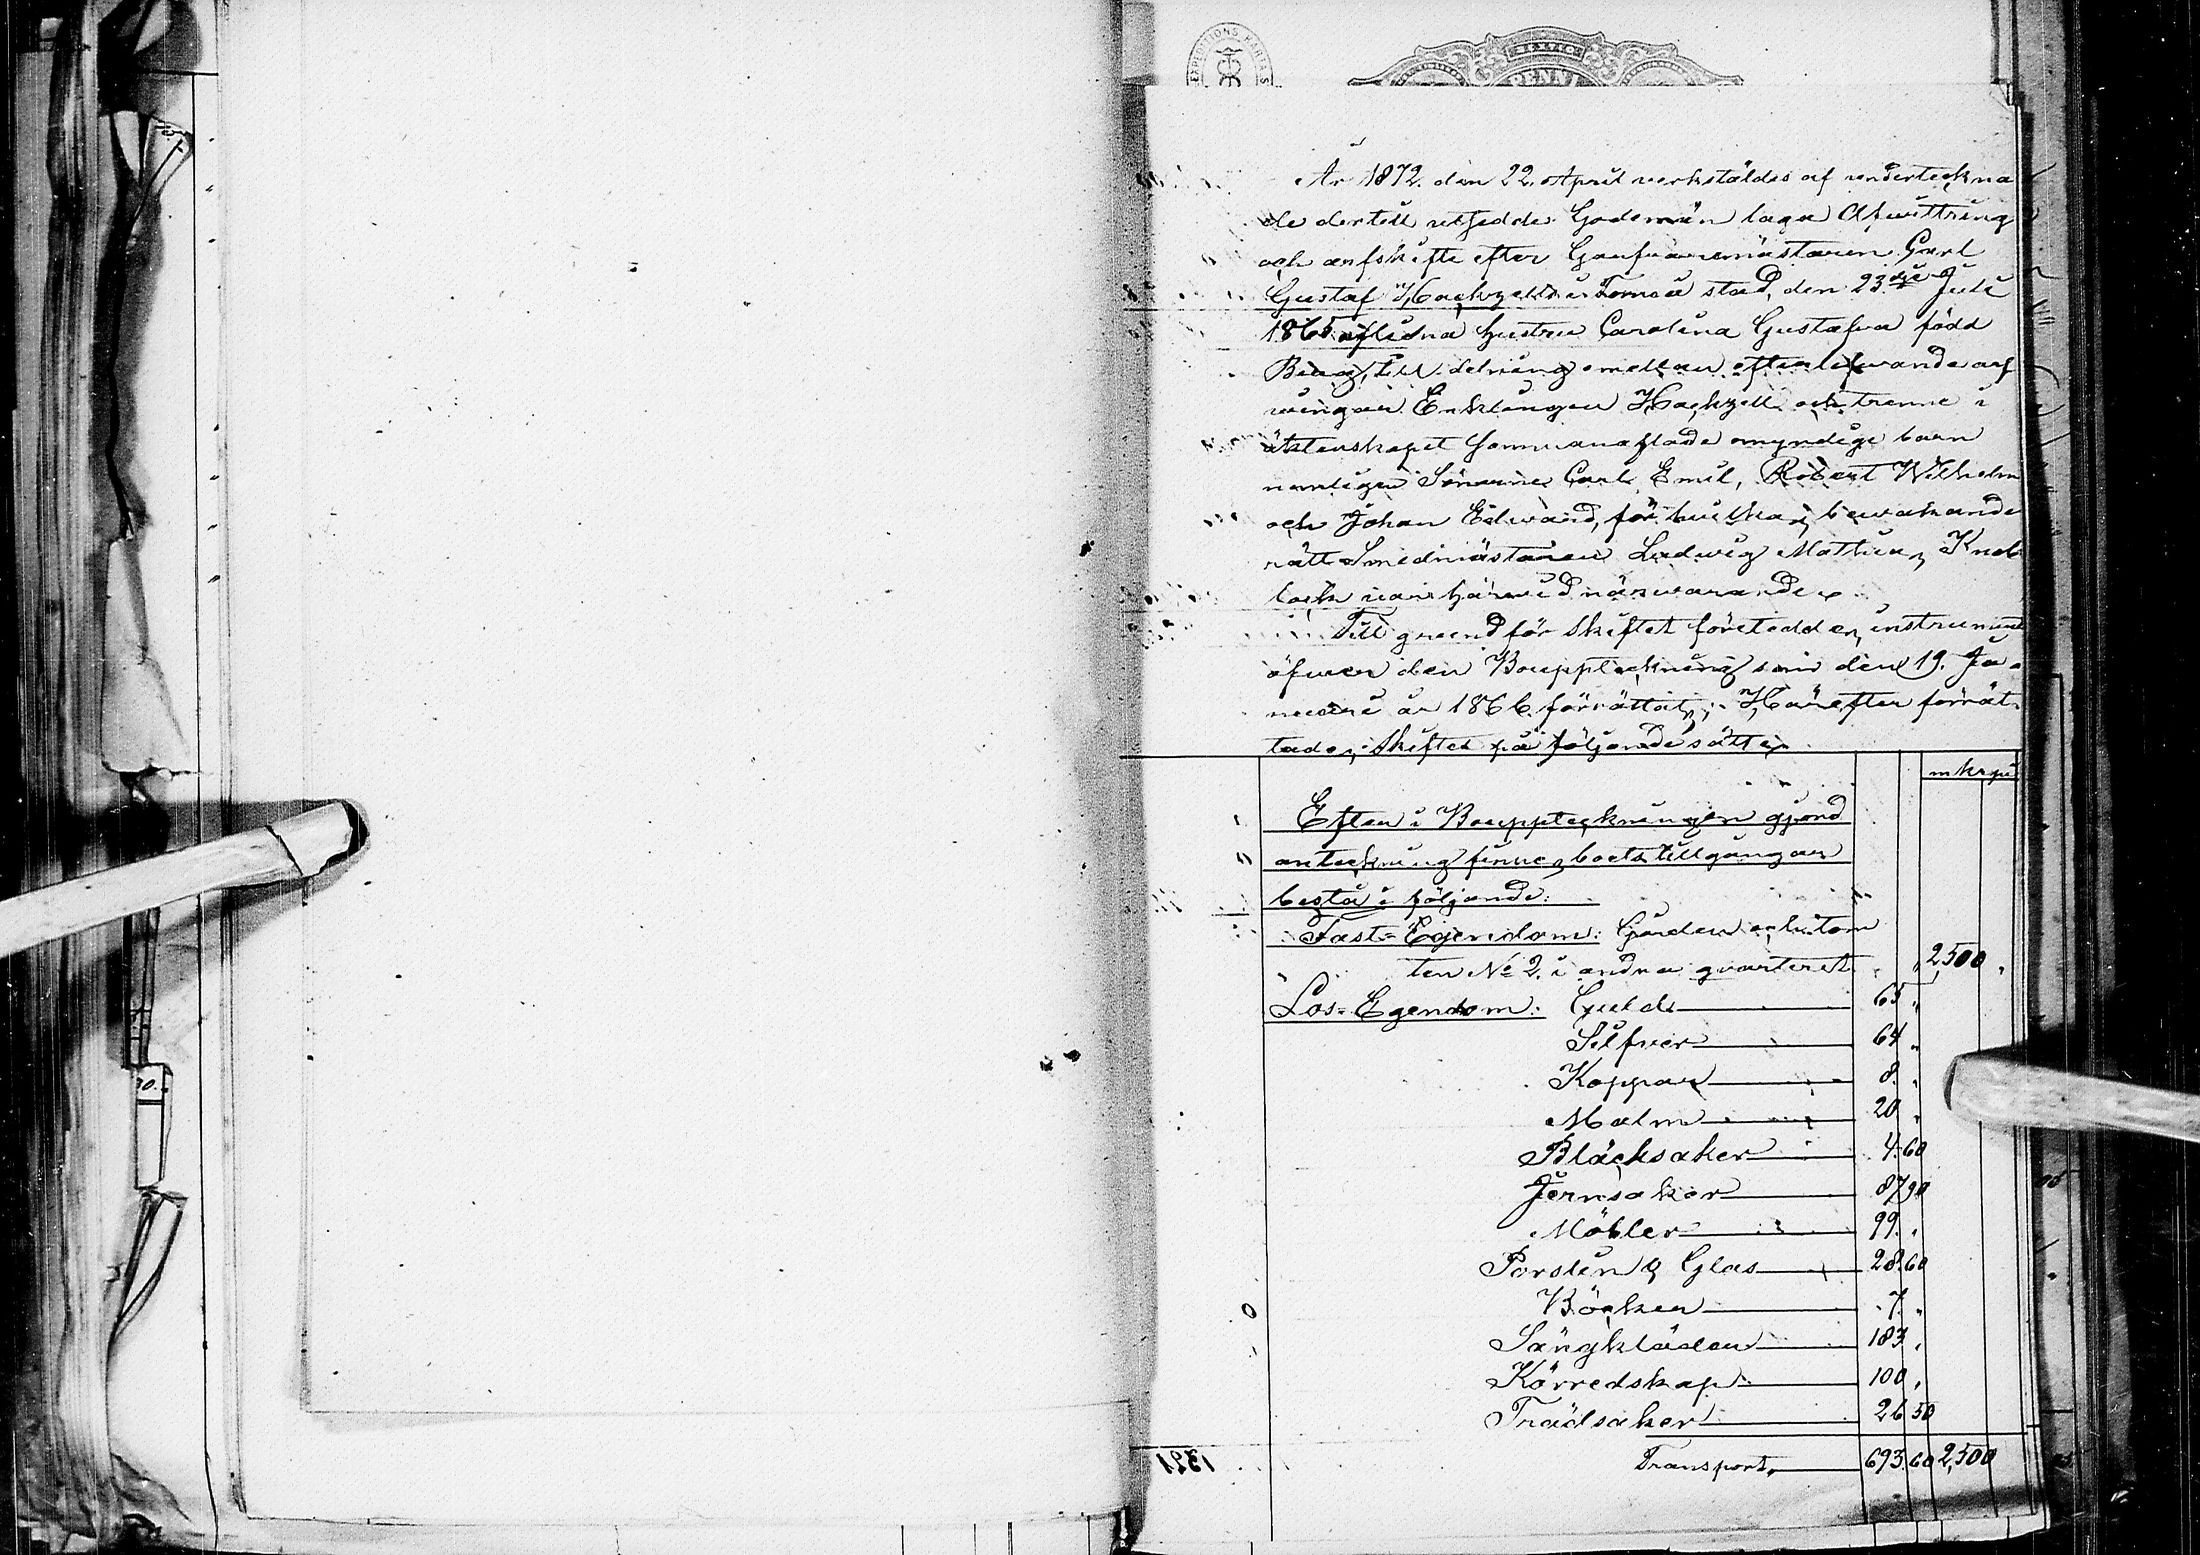 EXPEDITIONS KARTA S
SEXTIO
PENNI
År 1872 den 22 April verkstäldes af underteckna
de dertill utsedde Godemän laga Afwittring
och arfskifte efter Garfvaremästaren Carl
Gustaf Hackzells i Torneå stad, den 23dje Juli
1865 aflidna hustru Carolina Gustafva född
Berg, till delning emellan efterlefwande arf
wingar Enklingen Hackzell och trenne i
äktenskapet sammanaflade omyndige barn
nemligen Sönerne Carl Emil, Robert Wilhelm
och Johan Edward, för hvilkas bewakande
rätt Smedmästaren Ludwig Mattias Knob
lock var härwid närwarande.
Till grund för skiftet företeddes instrument
öfwer den Bouppteckning som den 19. Ja-
nuari år 1866 förrättats; Härefter förrät-
tades skiftet på följande sätt
mkr pi
Efter i Bouppteckningen gjord
anteckning finnes boets tillgångar
bestå i följande:
Fast-Egendom: Gården och tom
ten No 2. i andra qvarteret 2,500 "
Lös-Egendom: Guld 65 "
Silfver 64 "
Koppar 8. "
Malm 20 "
Bläcksaker 4.60
Jernsaker 87 90
Möbler 99. "
Porslin & Glas 28.60
Böcker 7. "
Sängkläder 183 "
Körredskap 100 "
Trädsaker 26 50
Transport, 693.60 2,500